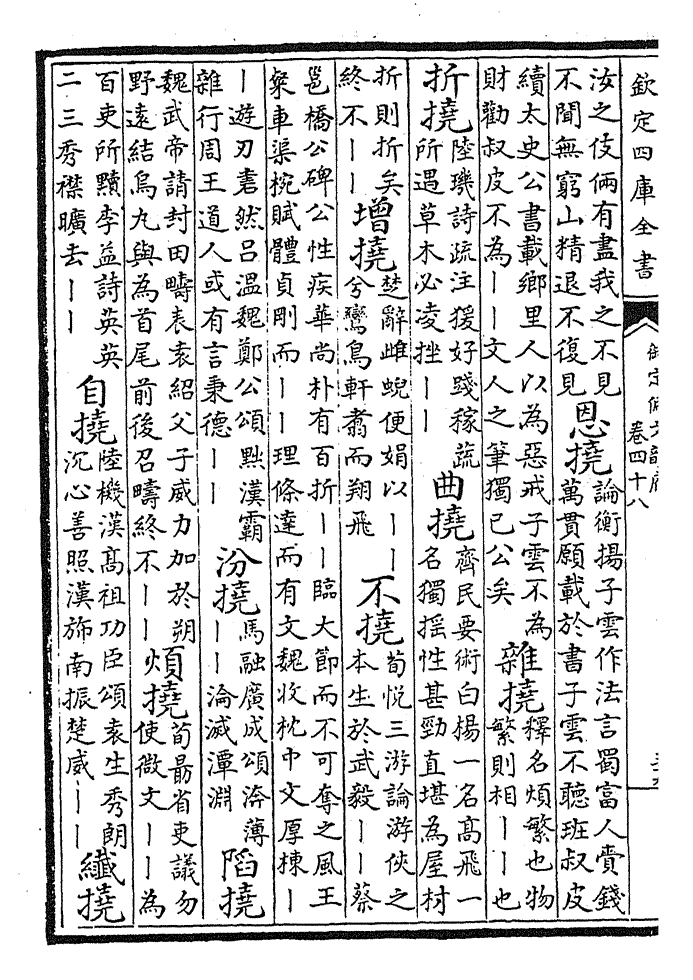 欽定四庫全書
御定佩文韻府
卷四十八
汝之伎倆有盡我之不見
不聞無窮山精退不復見
恩撓
論衡揚子雲作法言蜀富人賷錢
萬貫願載於書子雲不聽班叔皮
續太史公書載鄉里人以為惡戒子雲不為
財勸叔皮不為丨丨文人之筆獨已公矣
雜撓
釋名煩繁也物
繁則相丨丨也
折撓
陸璣詩疏注猨好踐稼蔬
所遇草木必凌挫丨丨
曲撓
齊民要術白楊一名高飛一
名獨揺性甚勁直堪為屋材
折則折矣
終不丨丨
增撓
楚辭雌蜺便娟以丨丨
兮鸞鳥軒翥而翔飛
不撓
荀悦三游論游俠之
本生於武毅丨丨蔡
邕橋公碑公性疾華尚朴有百折丨丨臨大節而不可奪之風王
粲車渠椀賦體貞剛而丨丨理條達而有文魏收枕中文厚棟丨
丨遊刃砉然吕溫魏鄭公頌㸃漢霸
雜行周王道人或有言秉德丨丨
汾撓
馬融廣成頌渀薄
丨丨淪滅潭淵
陷撓
魏武帝請封田疇表袁紹父子威力加於朔
野遠結烏丸與為首尾前後召疇終不丨丨
煩撓
荀朂省吏議勿
使微文丨丨為
百吏所黷李益詩英英
二三秀襟曠去丨丨
自撓
陸機漢髙祖功臣頌袁生秀朗
沉心善照漢斾南振楚威丨丨
纖撓